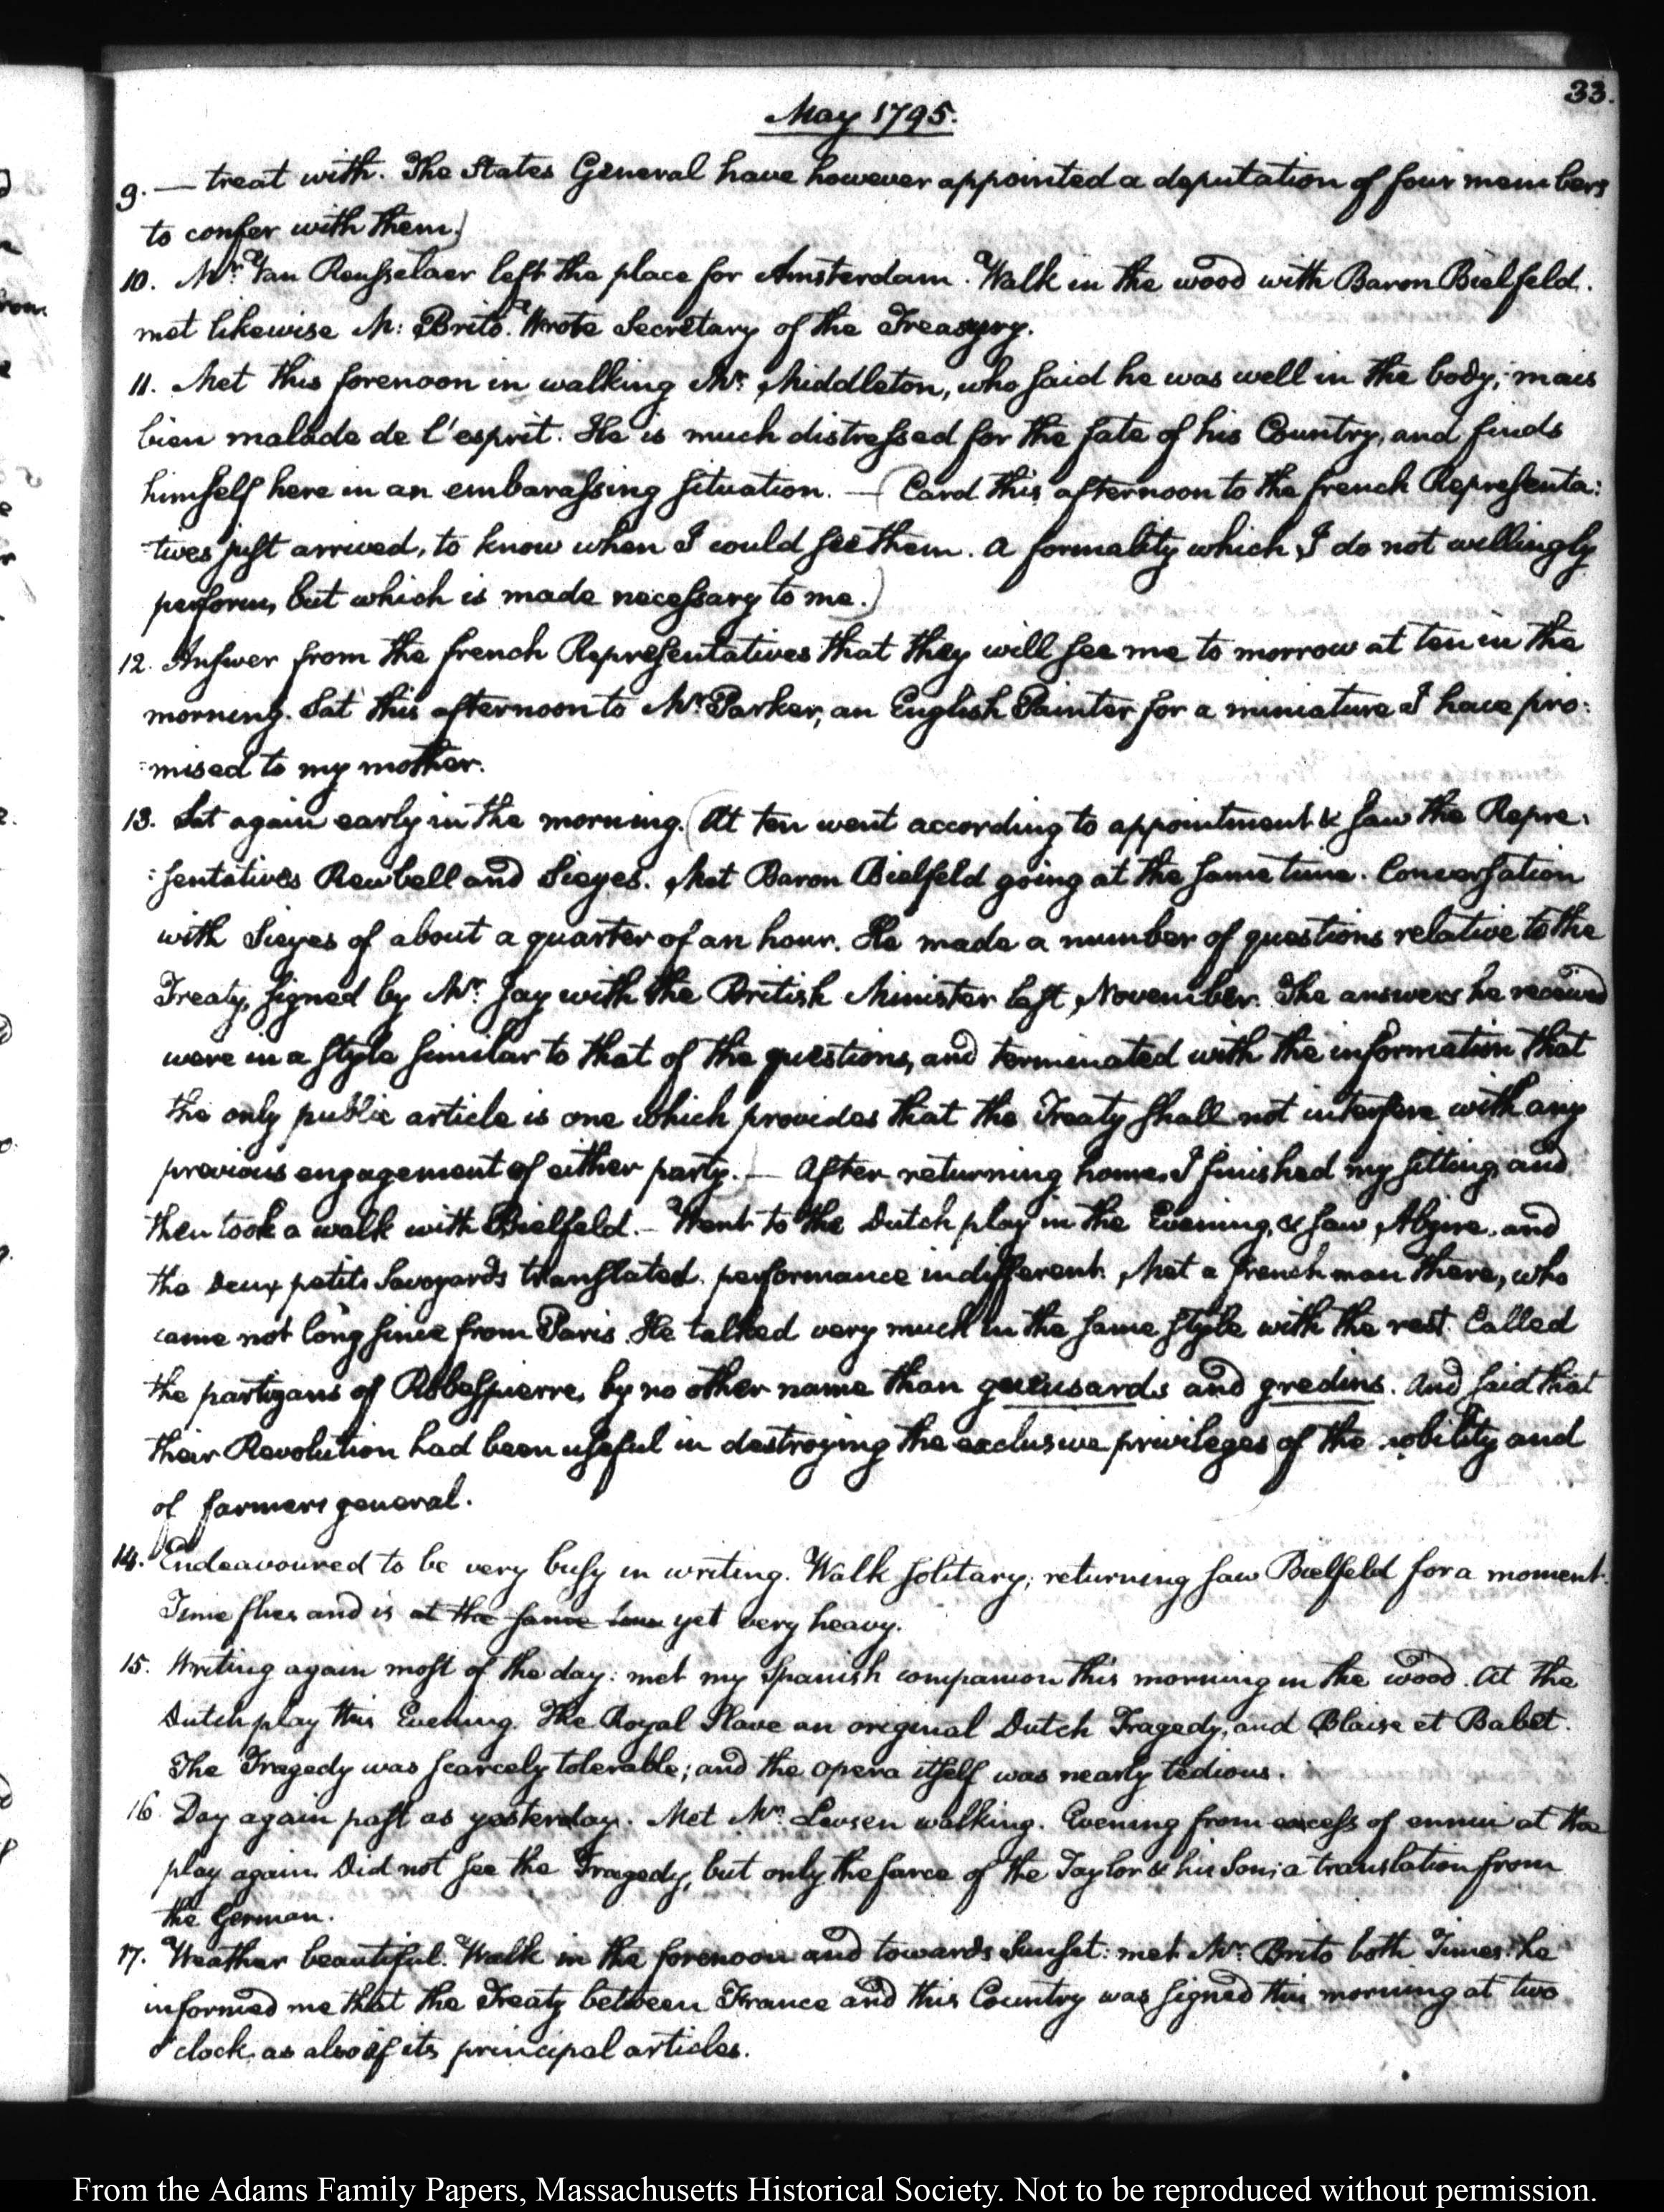 33.
May 1795.
9. — treat with. The States General have however appointed a deputation of four members
to confer with them.)
10. Mr. Van Rensselaer left the place for Amsterdam. Walk in the wood with Baron Bielfeld.
met likewise M: Brito. Wrote Secretary of the Treasury.
11. Met this forenoon in walking Mr. Middleton, who said he was well in the body; mais
bien malade de l'esprit. He is much distressed for the fate of his Country, and finds
himself here in an embarassing situation. — (Card this afternoon to the french Representa:
:tives just arrived, to know when I could see them. A formality which I do not willingly
perform, but which is made necessary to me.)
12. Answer from the french Representatives that they will see me to morrow at ten in the
morning. Sat this afternoon to Mr. Parker, an English Painter for a miniature I have pro:
:mised to my mother.
13. Sat again early in the morning. (At ten went according to appointment & saw the Repre:
:sentatives Rewbell and Sieyes. Met Baron Bielfeld going at the same time. Conversation
with Sieyes of about a quarter of an hour. He made a number of questions relative to the
Treaty, signed by Mr. Jay with the British Minister last November. The answers he received
were in a style similar to that of the questions, and terminated with the information that
the only public article is one which provides that the Treaty shall not interfere with any
previous engagement of either party.) — After returning home, I finished my sitting, and
then took a walk with Bielfeld. — Went to the Dutch play in the Evening, & saw, and
the Deux petits Savoyards translated. performance indifferent. Met a french man there, who
came not long since from Paris. He talked very much in the same style with the rest. Called
the partizans of Robespierre, by no other name than gueusards and gredins. And said that
their Revolution had been useful in destroying the exclusive privileges of the nobility and
of farmers general.
14. Endeavoured to be very busy in writing. Walk solitary; returning saw Bielfeld for a moment.
Time flies and is at the same time yet very heavy.
15. Writing again most of the day: met my Spanish companion this morning in the wood. At the
Dutch play this Evening. The Royal Slave an original Dutch Tragedy, and Blaise et Babet.
The Tragedy was scarcely tolerable; and the opera itself was nearly tedious.
16. Day again past as yesterday. Met Mr. Levsen walking. Evening from excess of ennui at the
play again. Did not see the Tragedy, but only the farce of the Taylor & his Son; a translation from
the German.
17. Weather beautiful. Walk in the forenoon and towards Sunset: met Mr. Brito both Times: he
informed me that the Treaty between France and this Country was signed this morning at two
o'clock. as also of its principal articles.
From the Adams Family Papers, Massachusetts Historical Society. Not to be reproduced without permission.